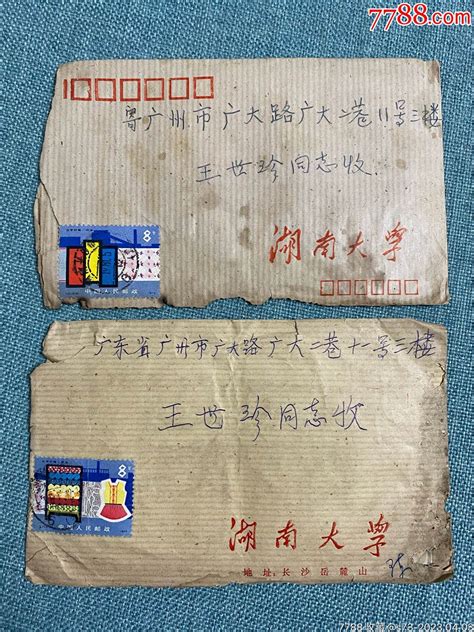 7788.com
寄广州市广大路广大二巷11号三楼
王世珍同志收
8
中国人民邮政
湖南大学
广东省广州市广大路广大二巷十一号三楼
王世珍同志收
8
中国人民邮政
湖南大学
地址：长沙岳麓山